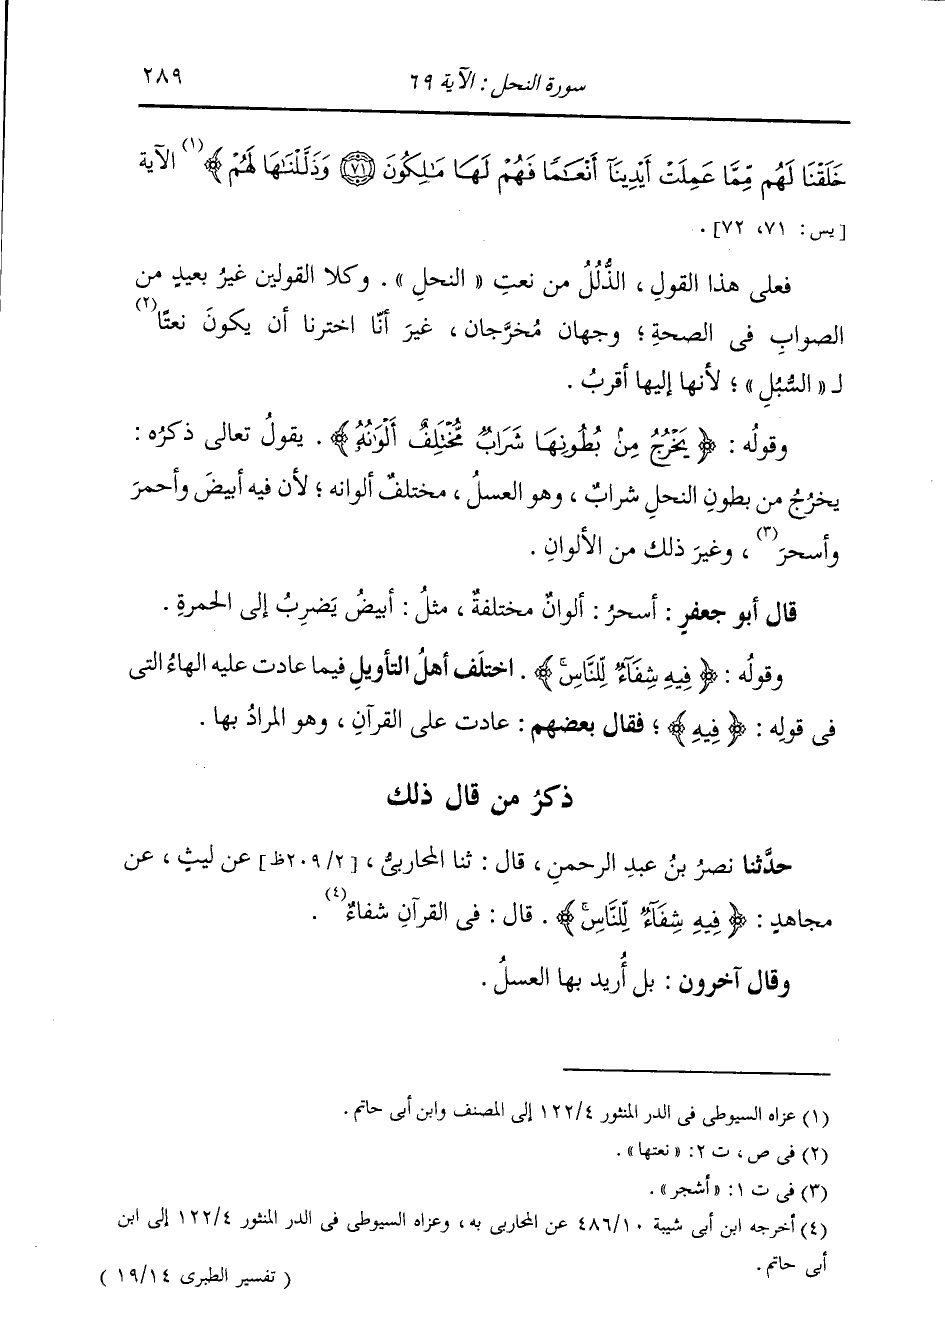 سورة النحل : الآية ٦٩
٢٨٩
خَلَقْنَا لَهُم مِّمَّا عَمِلَتْ أَيْدِينَآ أَنْعَـٰمًا فَهُمْ لَهَا مَـٰلِكُونَ ﴿٧١﴾ وَذَلَّلْنَـٰهَا لَهُمْ ﴾(١) الآية
[يس : ٧١، ٧٢] .
فعلى هذا القولِ ، الذُّلُلُ من نعتِ « النحلِ » . وكلا القولين غيرُ بعيدٍ من
الصوابِ فى الصحةِ ؛ وجهان مُخرَّجان ، غيرَ أنّا اخترنا أن يكونَ نعتًا(٢)
لـ « السُّبُلِ » ؛ لأنها إليها أقربُ .
وقولُه : ﴿ يَخْرُجُ مِنۢ بُطُونِهَا شَرَابٌ مُّخْتَلِفٌ أَلْوَٰنُهُۥ ﴾ . يقولُ تعالى ذكرُه :
يخرُجُ من بطونِ النحلِ شرابٌ ، وهو العسلُ ، مختلفٌ ألوانه ؛ لأن فيه أبيضَ وأحمرَ
وأسحرَ(٣) ، وغيرَ ذلك من الألوانِ .
قال أبو جعفرٍ : أسحرُ : ألوانٌ مختلفةٌ ، مثلُ : أبيضُ يَضرِبُ إلى الحمرةِ .
وقولُه : ﴿ فِيهِ شِفَآءٌ لِّلنَّاسِ ﴾ . اختلَف أهلُ التأويلِ فيما عادت عليه الهاءُ التى
فى قولِه : ﴿ فِيهِ ﴾ ؛ فقال بعضهم : عادت على القرآنِ ، وهو المرادُ بها .
ذكرُ من قال ذلك
حدَّثنا نصرُ بنُ عبدِ الرحمنِ ، قال : ثنا المحاربىُّ ، [٢٠٩/٢ظ] عن ليثٍ ، عن
مجاهدٍ : ﴿ فِيهِ شِفَآءٌ لِّلنَّاسِ ﴾ . قال : فى القرآنِ شفاءٌ(٤) .
وقال آخرون : بل أُريد بها العسلُ .
(١) عزاه السيوطى فى الدر المنثور ١٢٢/٤ إلى المصنف وابن أبى حاتم .
(٢) فى ص ، ت ٢: « نعتها » .
(٣) فى ت ١: « أشجر » .
(٤) أخرجه ابن أبى شيبة ٤٨٦/١٠ عن المحاربى به ، وعزاه السيوطى فى الدر المنثور ١٢٢/٤ إلى ابن
أبى حاتم .
( تفسير الطبرى ١٩/١٤ )